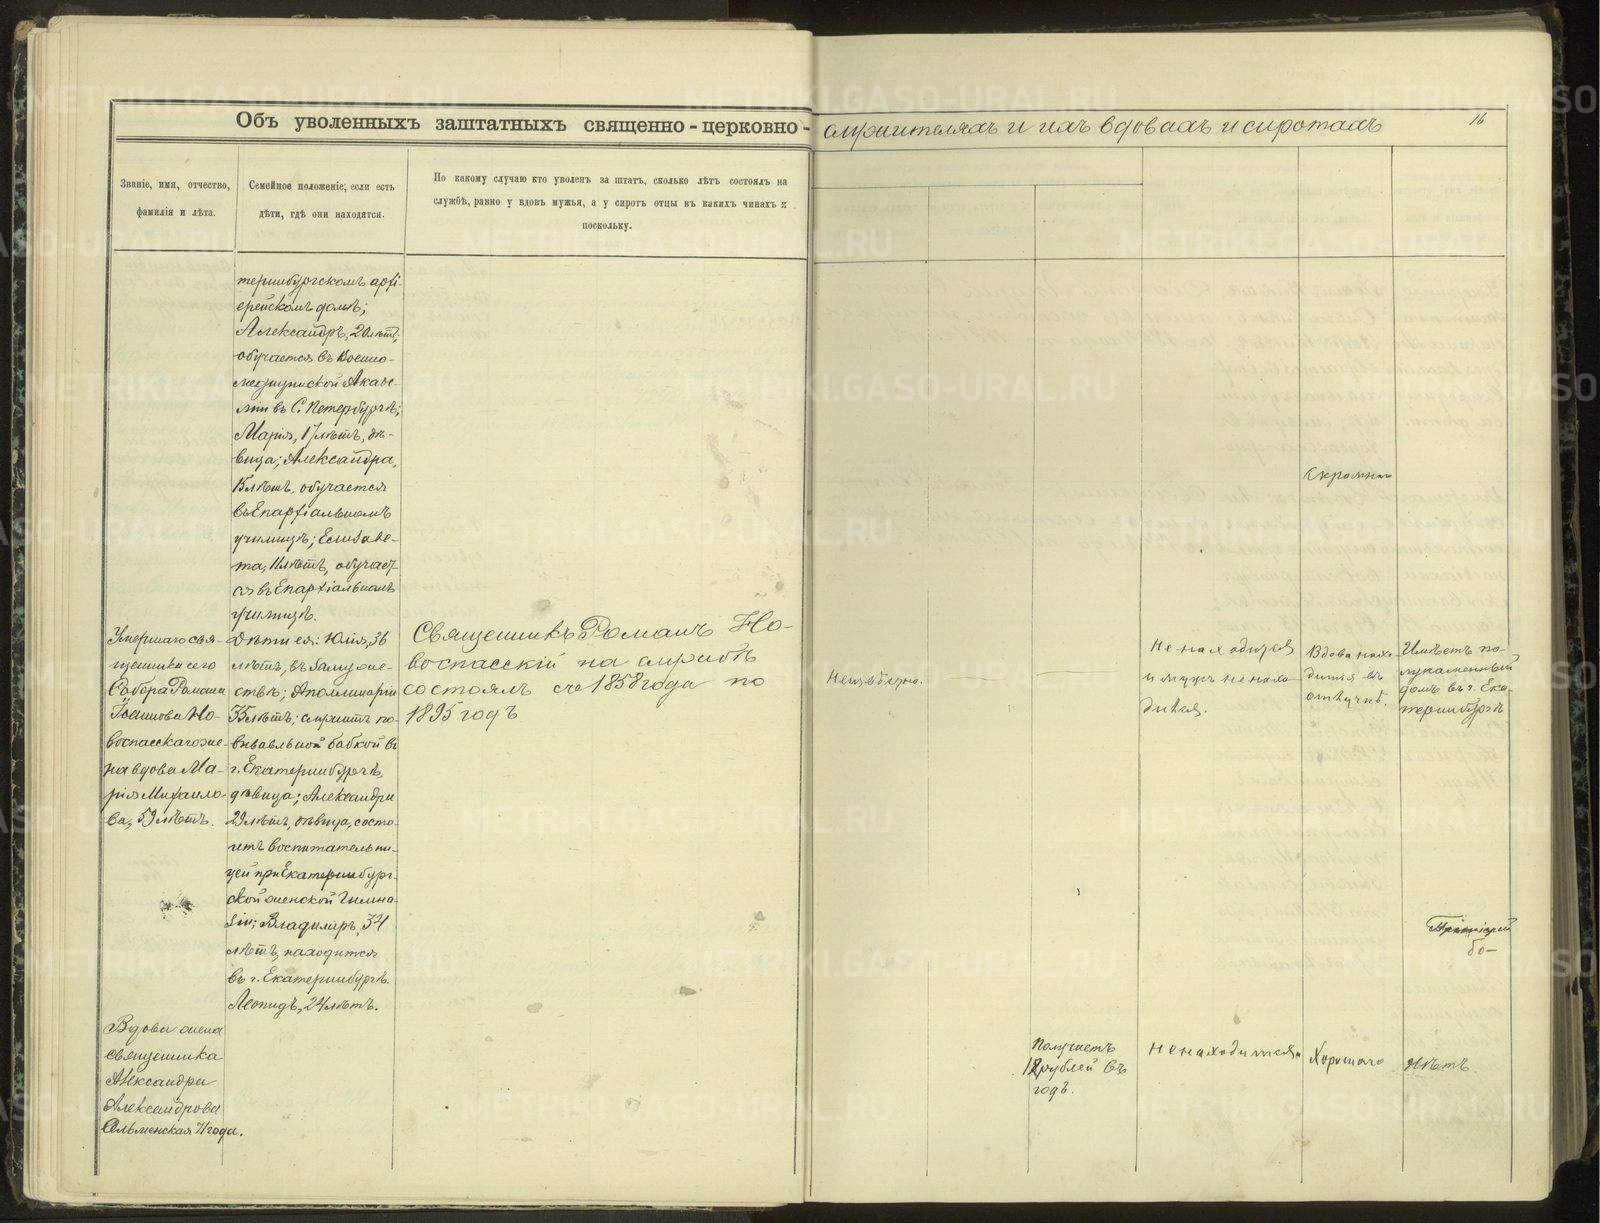 Объ уволенныхъ заштатныхъ священно-церковно-
служителяхъ и ихъ вдовахъ и сиротахъ
16
Званіе, имя, отчество,
фамилія и лѣта.
Семейное положеніе; если есть
дѣти, гдѣ они находятся.
По какому случаю кто уволенъ за штатъ, сколько лѣтъ состоялъ на
службѣ, равно у вдовъ мужья, а у сиротъ отцы въ какихъ чинахъ и
поскольку.
теринбургскомъ архі-
ерейскомъ домѣ;
Александръ, 20 лѣтъ,
обучается въ Военно-
медицинской Акаде-
міи въ С. Петербургѣ;
Марія, 17 лѣтъ, дѣ-
вица; Александра,
15 лѣтъ, обучается
въ Епархіальномъ
училищѣ; Елизаве-
та, 11 лѣтъ, обучает-
ся въ Епархіальномъ
училищѣ.
Скромнаго
Умершаго свя-
щенника сего
Собора Романа
Іоаннова Но-
воспасскаго же-
на вдова Ма-
рія Михаило-
ва, 59 лѣтъ.
Дѣти ея: Юлія, 36
лѣтъ, въ замуже-
ствѣ; Аполлинарія
35 лѣтъ; служитъ по-
вивальной бабкой въ
г. Екатеринбургѣ,
дѣвица; Александра
29 лѣтъ, дѣвица, состо-
итъ воспитательни-
цей при Екатеринбург-
ской женской Гимна-
зіи; Владиміръ, 34
лѣтъ, находится
въ г. Екатеринбургѣ.
Леонидъ, 24 лѣтъ.
Священникъ Романъ Но-
воспасскій на службѣ
состоялъ съ 1858 года по
1895 годъ
Неизвѣстно.
Не находится
и мужъ не нахо-
дился.
Вдова нахо-
дится въ
отлучкѣ.
Имѣетъ по-
лукаменный
домъ въ г. Ека-
теринбургѣ
бо-
Вдова жена
священника
Александра
Александрова
Ольменская 71 года.
Получаетъ
12 рублей въ
годъ.
Не находится
Хорошаго
Нѣтъ.
METRIKI.GASO-URAL.RU